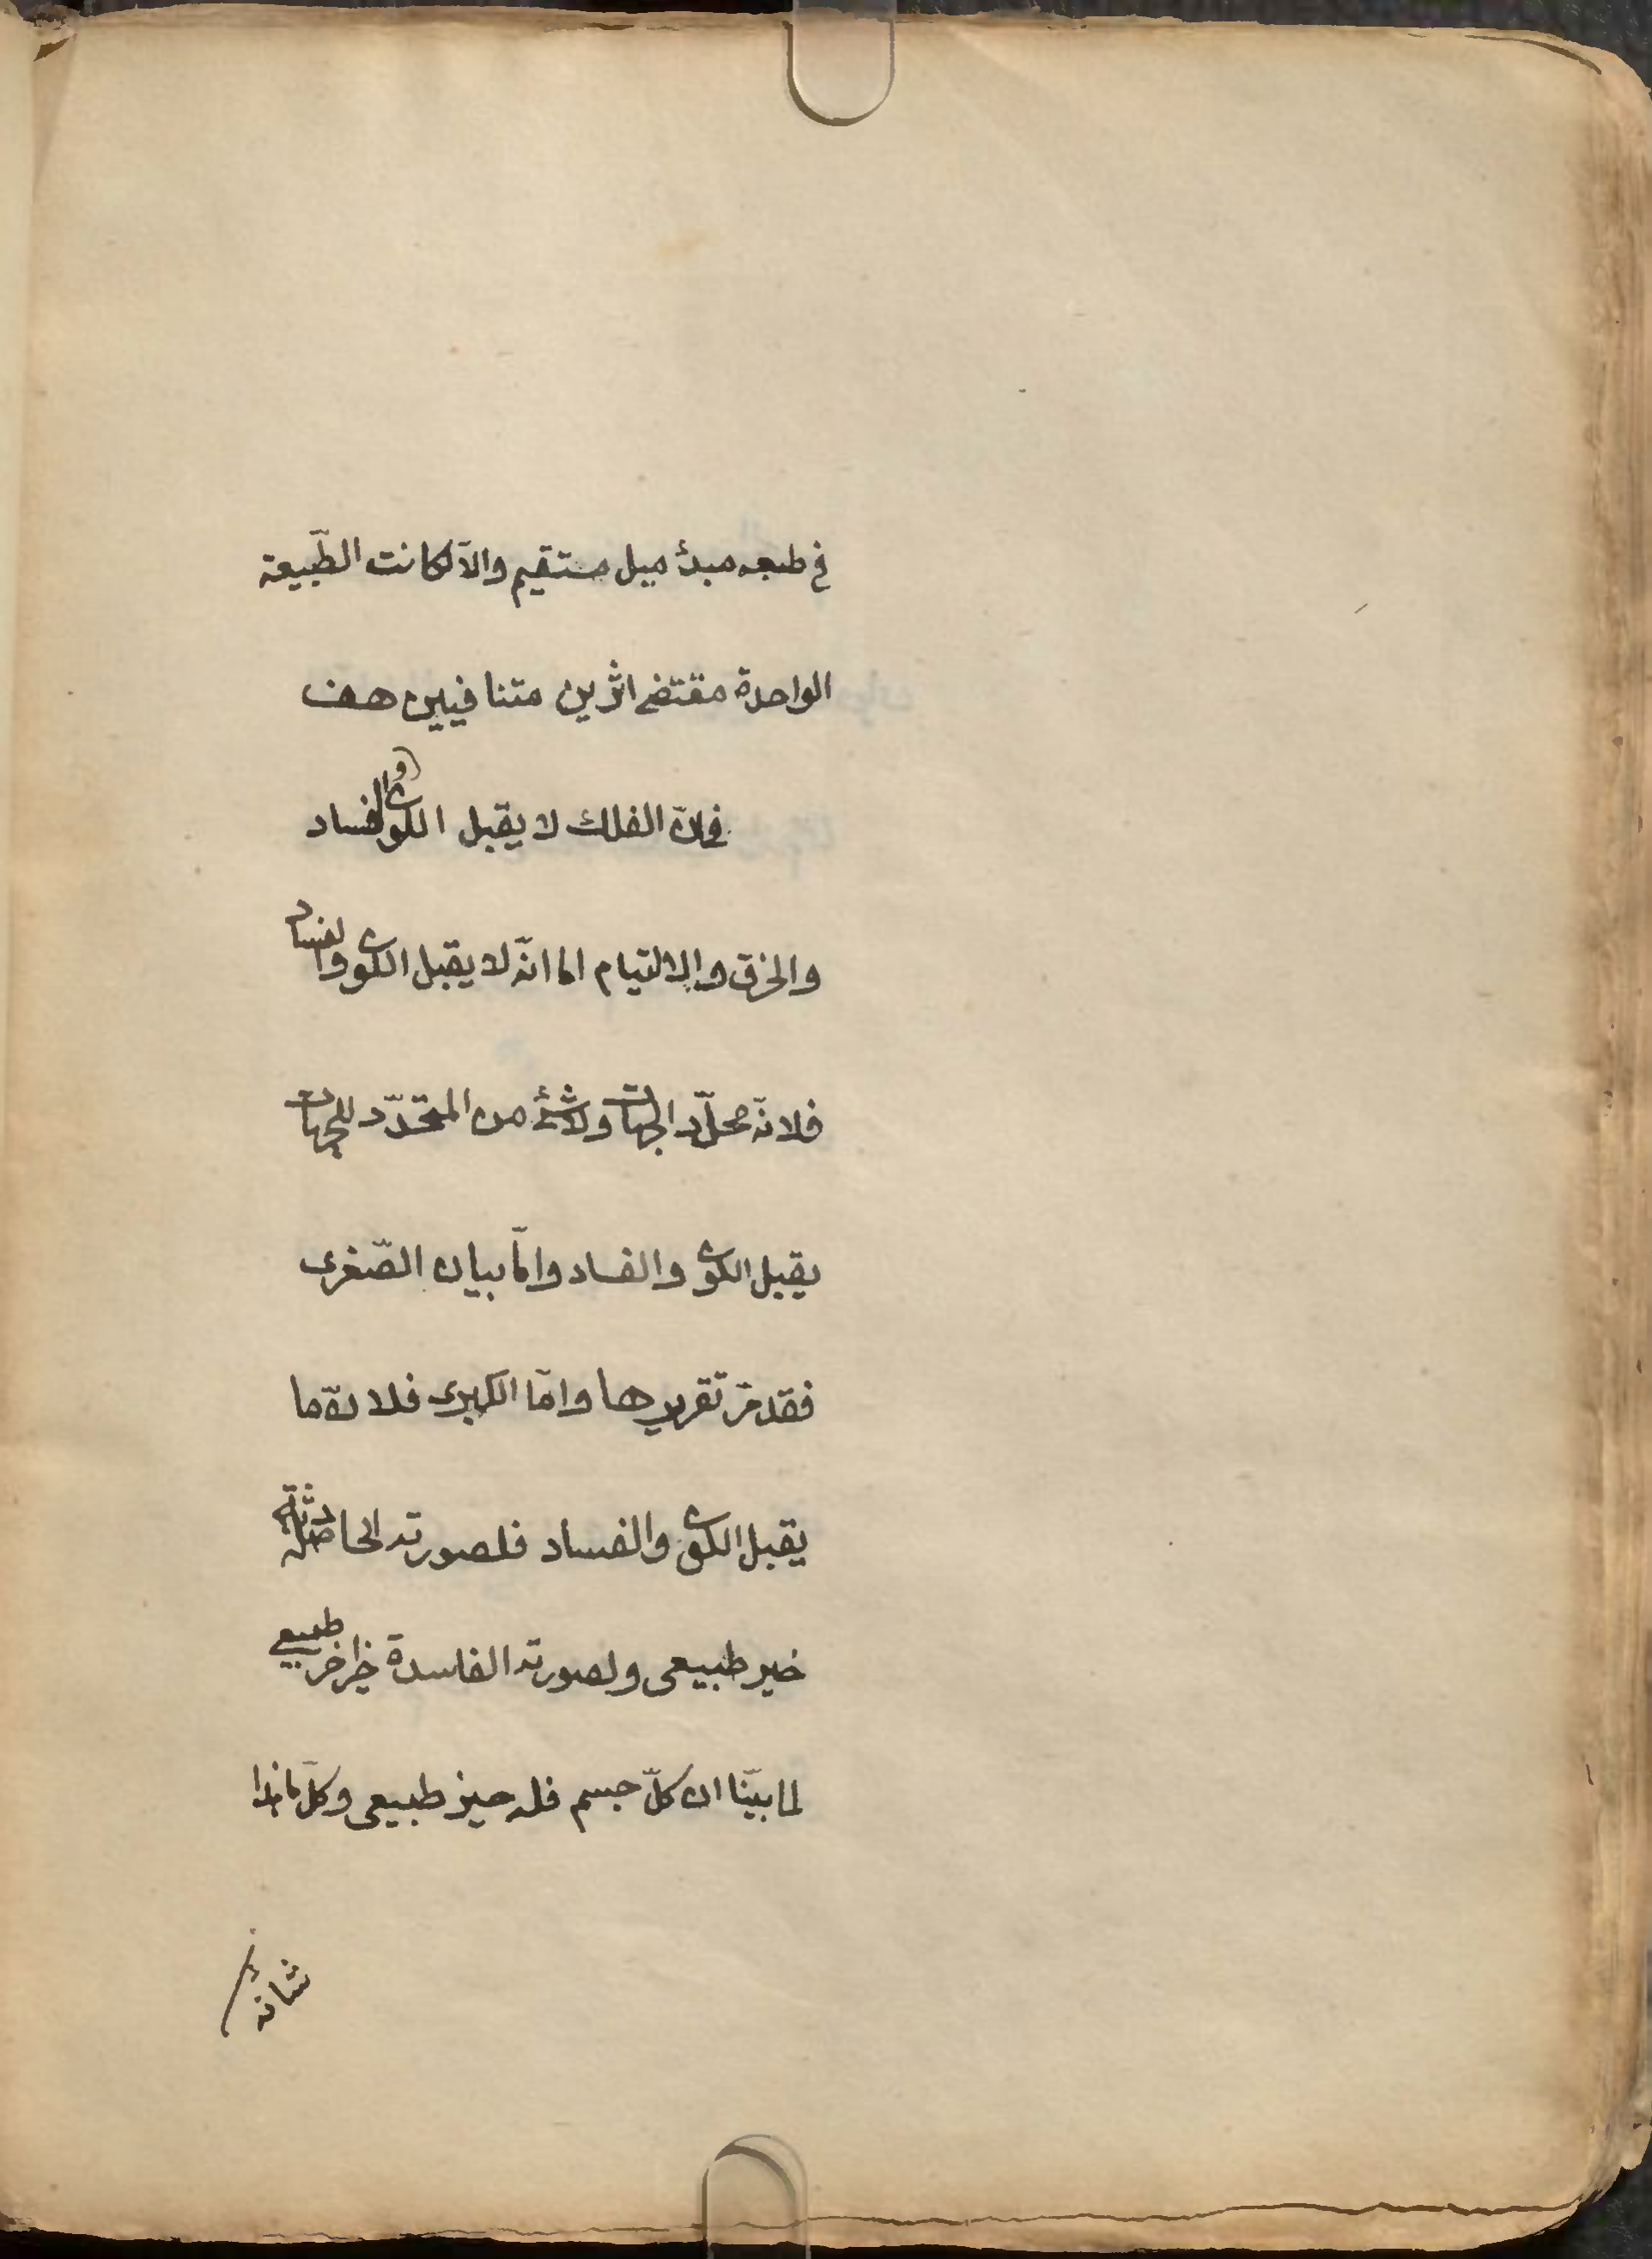 في طبعه مبدأ ميل مستقيم والّا لكانت الطّبيعة
الواحدة مقتضى اثرين متنافيين هف
في انّ الفلك لا يقبل الكون والفساد
والخرق والالتيام اما انّه لا يقبل الكون والفساد
فلانّه محدّد الجهات ولا شئ من المحدّد للجهات
يقبل الكون والفساد وامّا بيان الصّغرى
فقد مرّ تقريرها وامّا الكبرى فلانّ ما
يقبل الكون والفساد فلصورته الحادثة
حيز طبيعى ولصورته الفاسدة حيز اخر طبيعي
لما بيّنا ان كلّ جسم فله حيز طبيعى وكلّ ما هذا
شانه